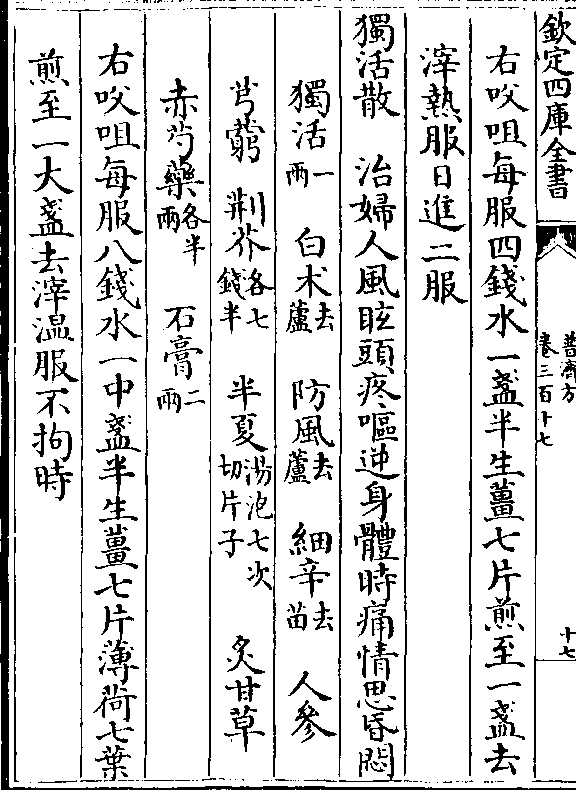 欽定四庫全書
普濟方
卷三百十七
十七
右㕮咀每服四錢水一盞半生薑七片煎至一盞去
滓熱服日進二服
獨活散　治婦人風眩頭疼嘔逆身體時痛情思昏悶
獨活一兩　白术去蘆　防風去蘆　細辛去苗　人參
芎藭　荆芥各七錢半　半夏湯泡七次切片子　炙甘草
赤芍藥各半兩　石膏二兩
右㕮咀每服八錢水一中盞半生薑七片薄荷七葉
煎至一大盞去滓溫服不拘時